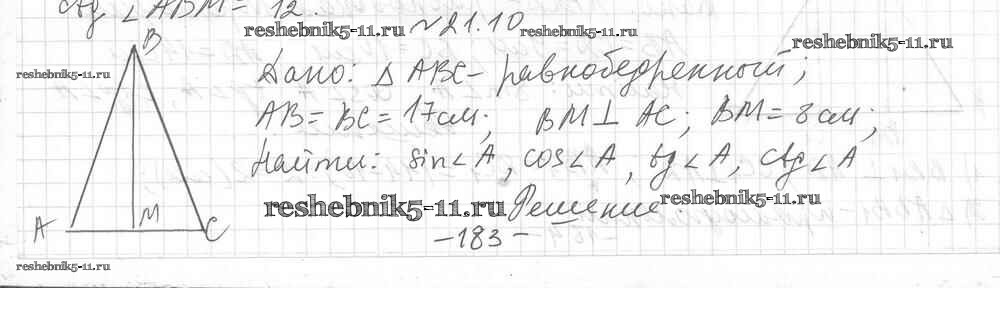 ctg ∠ABM = 12.
reshebnik5-11.ru №21.10 reshebnik5-11.ru
reshebnik5-11.ru
B
reshebnik5-11.ru
Дано: △ ABC - равнобедренный;
AB = BC = 17 см; BM ⊥ AC; BM = 8 см;
Найти: sin∠A, cos∠A, tg∠A, ctg∠A
reshebnik5-11.ru Решение. reshebnik5-11.ru
A M C
-183-
reshebnik5-11.ru